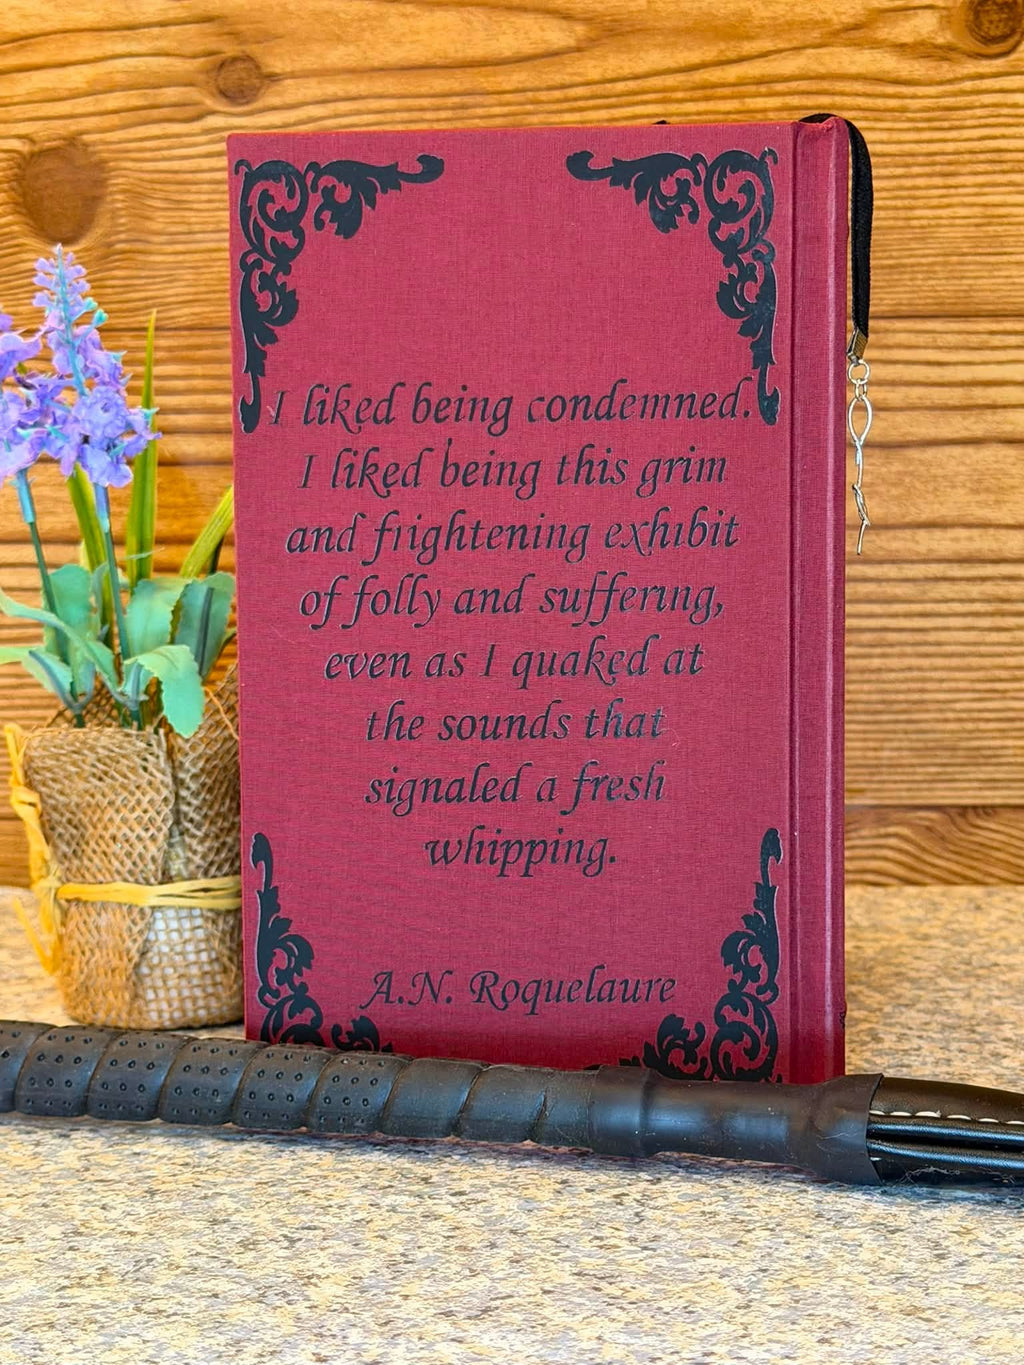 I liked being condemned.
I liked being this grim
and frightening exhibit
of folly and suffering,
even as I quaked at
the sounds that
signaled a fresh
whipping.
A.N. Roquelaure